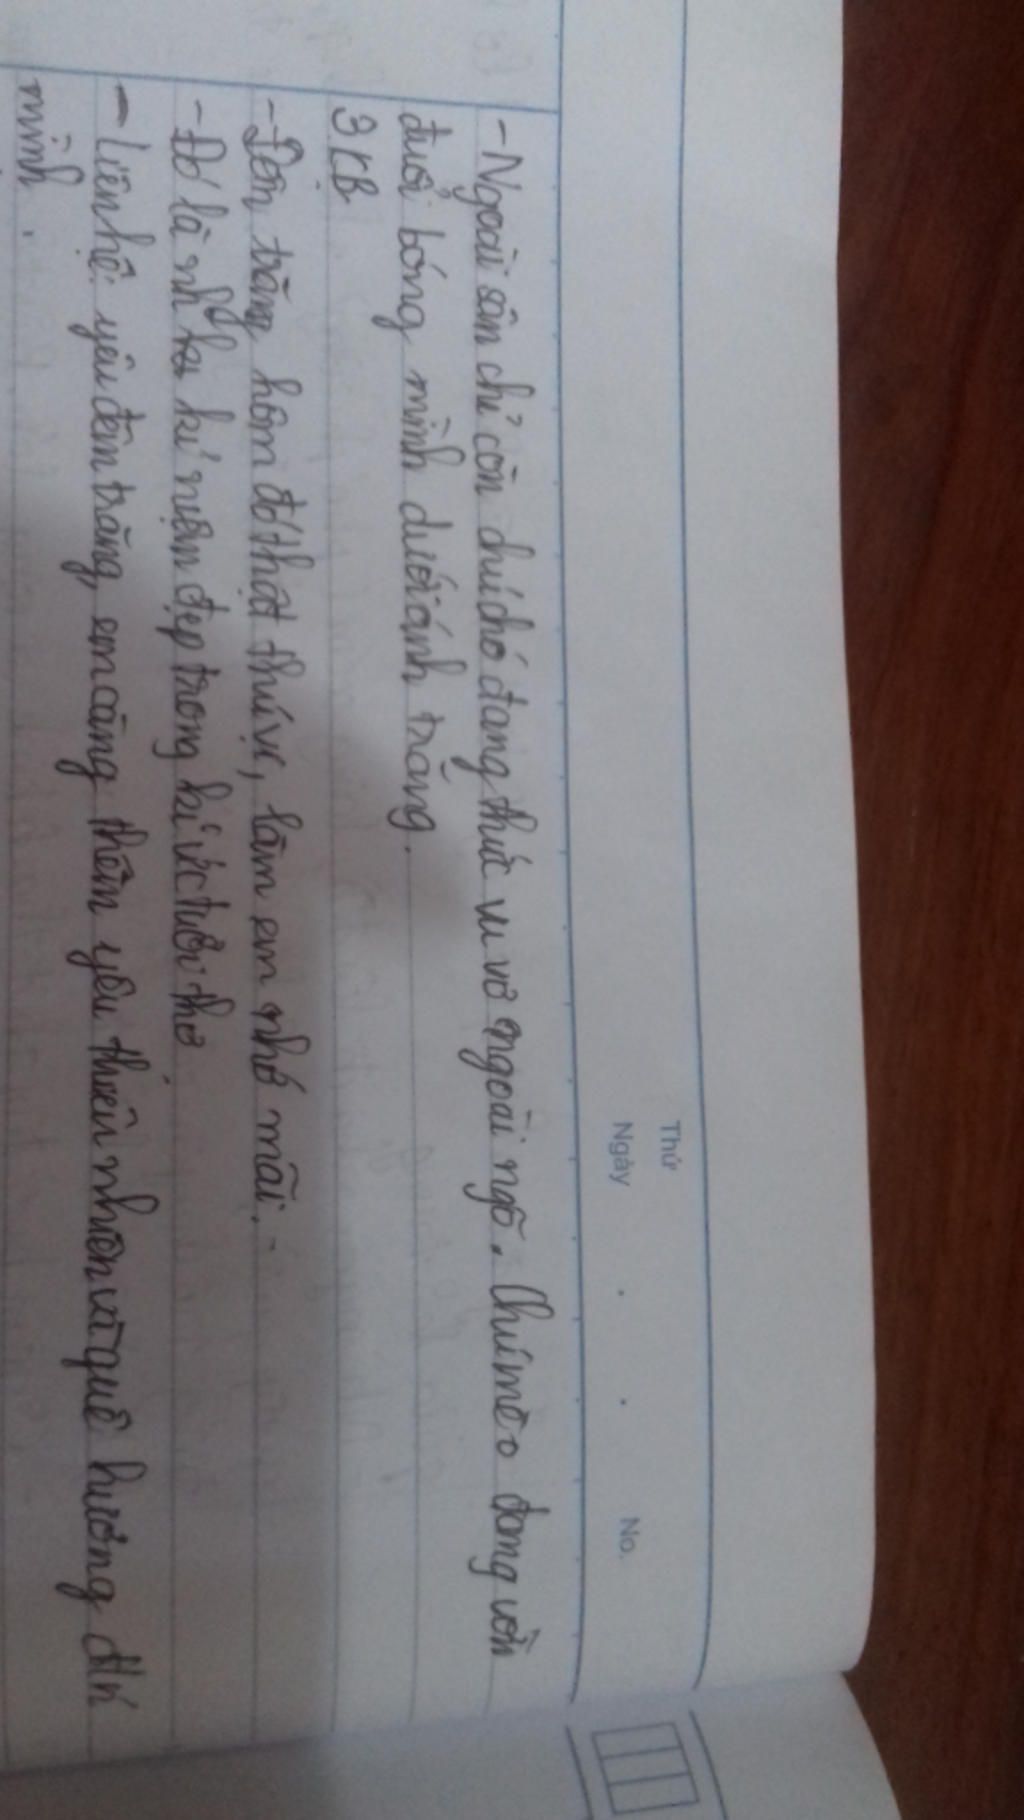 Thứ
Ngày . . No.
- Ngoài sân chỉ còn chú chó đang thức vu vơ ngoài ngõ. Chú mèo đang vờn
đuổi bóng mình dưới ánh trăng.
3 KB
- Đêm trăng hôm đó thật thú vị, làm em nhớ mãi.
- Đó là những kỉ niệm đẹp trong kí ức tuổi thơ
- Liên hệ: yêu đêm trăng, em càng thêm yêu thiên nhiên và quê hương
mình.